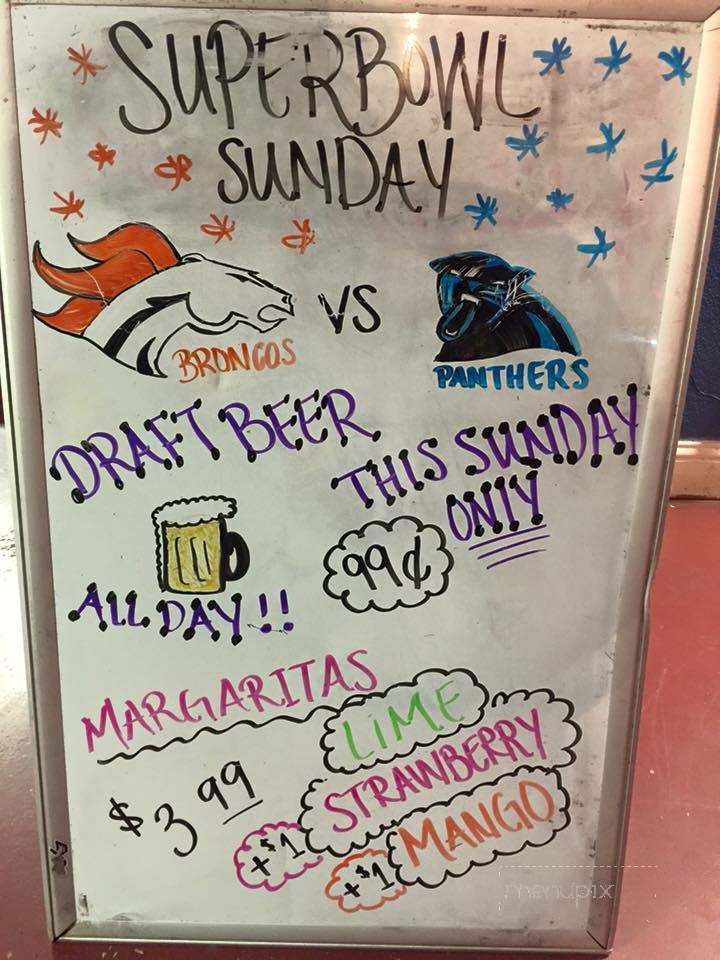 SUPERBOWL
SUNDAY
BRONCOS
VS
PANTHERS
DRAFT BEER
THIS SUNDAY
ONLY
99¢
ALL DAY!!
MARGARITAS
LIME
STRAWBERRY
$3.99
+$1
MANGO
+$1
menupix